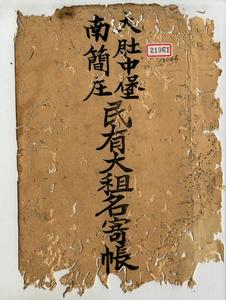 大肚中堡
南簡庄
民有大租名寄帳
21961